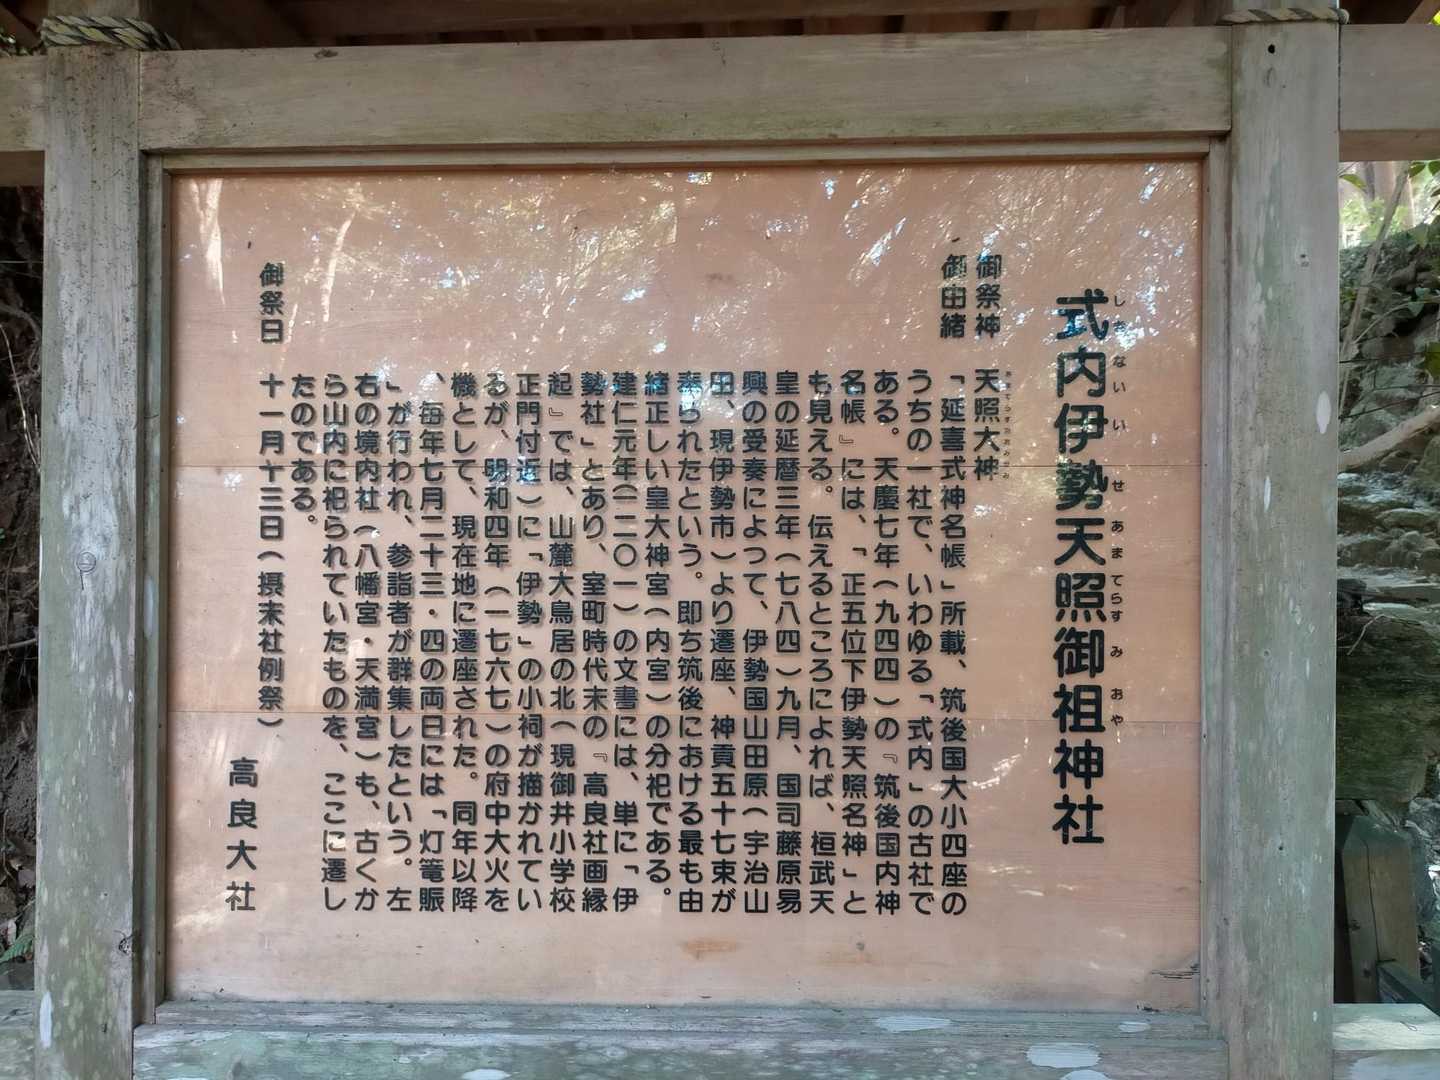 式内伊勢天照御祖神社
しきないいせあまてらすみおや
御祭神　天照大神
あまてらすおおみかみ
御由緒　「延喜式神名帳」所載、筑後国大小四座の
うちの一社で、いわゆる「式内」の古社で
ある。天慶七年（九四四）の『筑後国内神
名帳』には、「正五位下伊勢天照名神」と
も見える。伝えるところによれば、桓武天
皇の延暦三年（七八四）九月、国司藤原易
興の受奏によって、伊勢国山田原（宇治山
田、現伊勢市）より遷座、神貢五十七束が
奉られたという。即ち筑後における最も由
緒正しい皇大神宮（内宮）の分祀である。
建仁元年（一二〇一）の文書には、単に「伊
勢社」とあり、室町時代末の『高良社画縁
起』では、山麓大鳥居の北（現御井小学校
正門付近）に「伊勢」の小祠が描かれてい
るが、明和四年（一七六七）の府中大火を
機として、現在地に遷座された。同年以降
、毎年七月二十三・四の両日には「灯篭賑
」が行われ、参詣者が群集したという。左
右の境内社（八幡宮・天満宮）も、古くか
ら山内に祀られていたものを、ここに遷し
たのである。
御祭日　十一月十三日（摂末社例祭）
高良大社